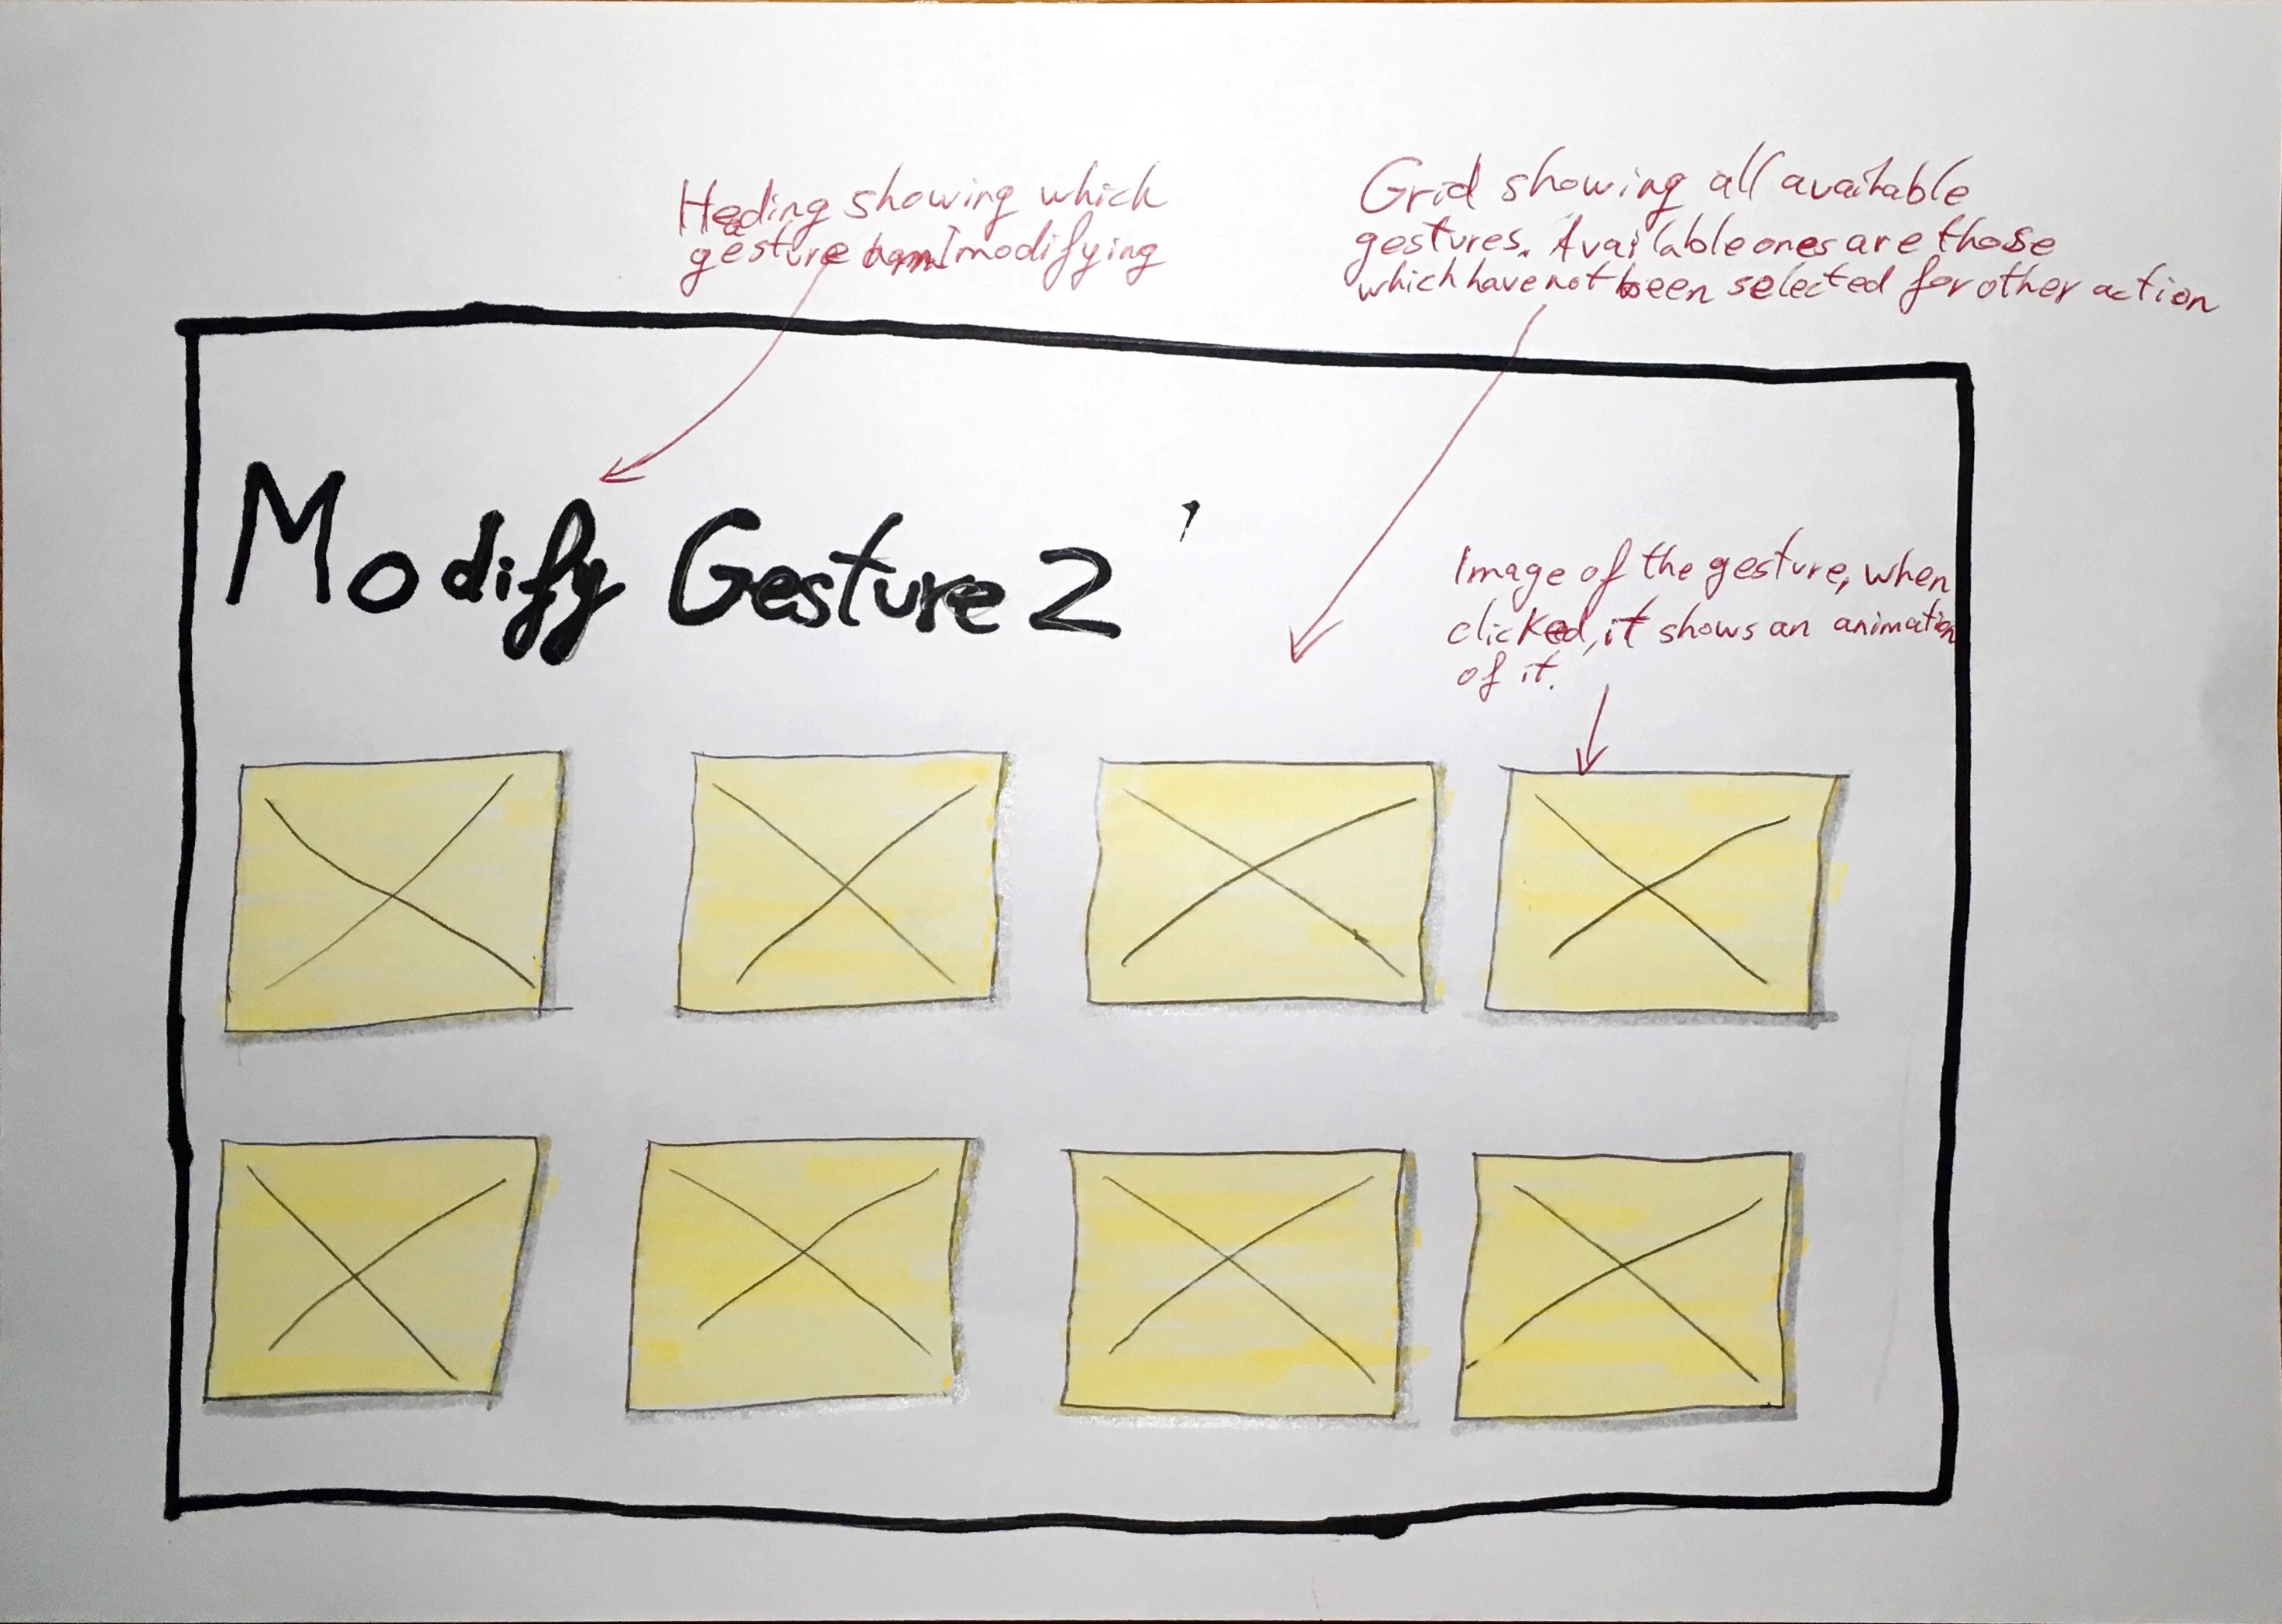 Heading showing which
gesture am I modifying
Grid showing all available
gestures. Available ones are those
which have not been selected for other action
Modify Gesture 2
Image of the gesture, when
clicked, it shows an animation
of it.